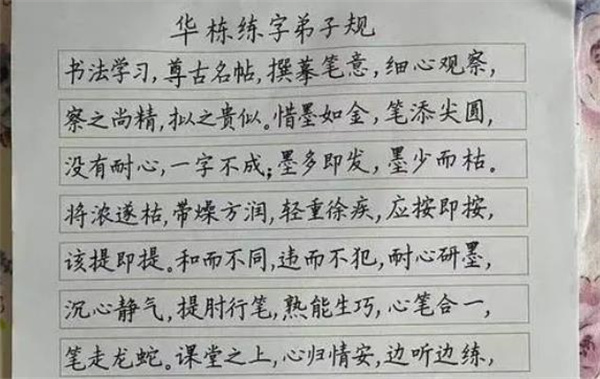 华栋练字弟子规
书法学习,尊古名帖,撰摹笔意,细心观察,
察之尚精,拟之贵似。惜墨如金,笔添尖圆,
没有耐心,一字不成;墨多即发,墨少而枯。
将浓遂枯,带燥方润,轻重徐疾,应按即按,
该提即提。和而不同,违而不犯,耐心研墨,
沉心静气,提肘行笔,熟能生巧,心笔合一,
笔走龙蛇。课堂之上,心归情安,边听边练,